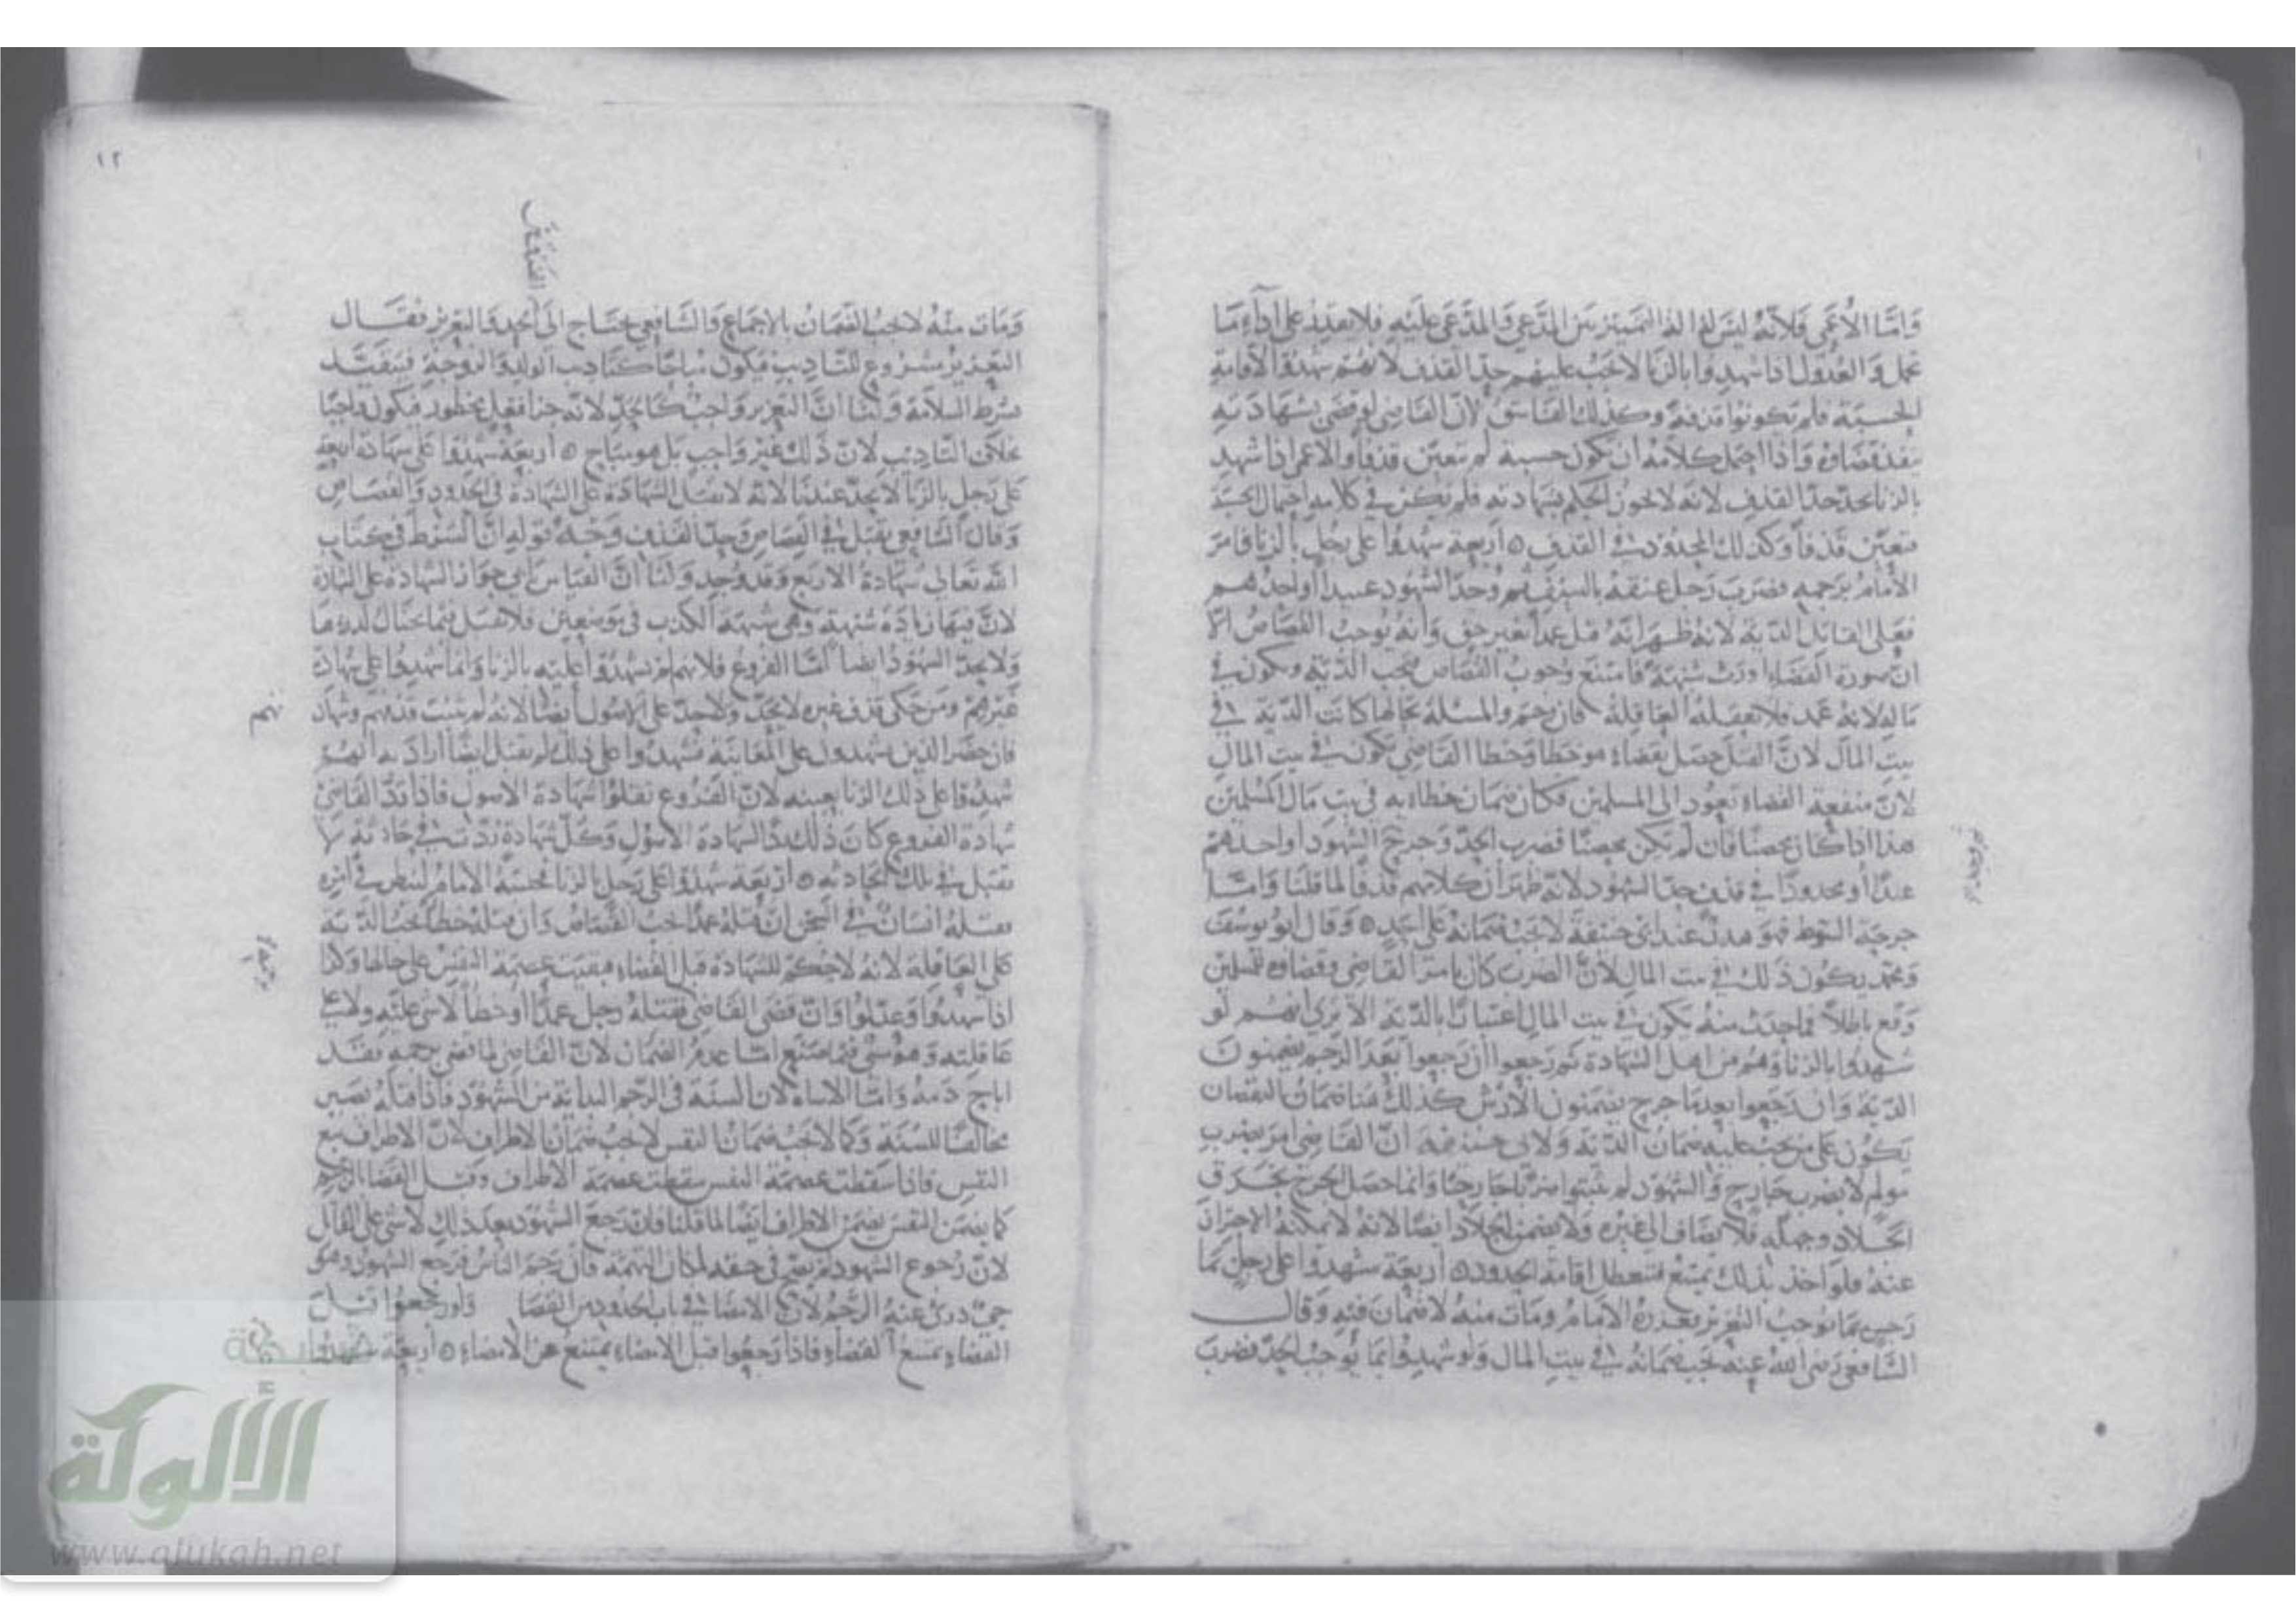 واما الاعمى فلانه ليس له التمييز بين المدعي والمدعى عليه فلا يقدر على اداء ما
تحمل والعدول اذا شهدوا بالزنا لا يجب عليهم حد القذف لانهم شهدوا لاقامة
الحسبة فلم يكونوا قذفة وكذلك الفاسق لان القاضي لو قضى بشهادته
نفذ قضاوه واذا احتمل كلامه ان يكون حسبة لم يتعين قذفا والاعمى اذا شهد
بالزنا يحد حد القذف لانه لا يجوز الحكم بشهادته فلم يكن في كلامه احتمال الحسبة
فتعين قذفا وكذلك المحدود في القذف ه اربعة شهدوا على رجل بالزنا فامر
الامام برجمه فضرب رجل عنقه بالسيف ثم وجد الشهود عبيدا او احدهم
فعلى القاتل الدية لانه ظهر انه قتل عمدا بغير حق وانه يوجب القصاص الا
ان صورة القضاء اورث شبهة فامتنع وجوب القصاص فيجب الدية ويكون في
ماله لانه عمد فلا يعقله العاقلة فان رجم والمسلة بحالها كانت الدية في
بيت المال لان القتل حصل بقضاء هو خطا وخطا القاضي يكون في بيت المال
لان منفعة القضاء يعود الى المسلمين فكان ضمان خطاه في بيت مال المسلمين
هذا اذا كان محصنا فان لم يكن محصنا فضرب الحد وجرح الشهود او احدهم
عبدا او محدودا في قذف حد الشهود لانه ظهر ان كلامهم قذف لما قلنا واما
جرحه السوط فهو هدر عند ابي حنيفة لا يجب ضمانه على احد ه وقال ابو يوسف
ومحمد يكون ذلك في بيت المال لان الضرب كان بامر القاضي وقضاوه للمسلمين
وقع باطلا فما حدث منه يكون في بيت المال اعتبارا بالدية الا يرى انهم لو
شهدوا بالزنا وهم من اهل الشهادة ثم رجعوا ان رجعوا بعد الرجم يضمنون
الدية وان رجعوا بعد ما جرح يضمنون الارش كذلك هنا ضمان النقصان
يكون على من يجب عليه ضمان الدية ولابي حنيفة ان القاضي امر بضرب
مولم لا بضرب جارح والشهود لم يثبتوا ضربا جارحا وانما حصل الجرح بخرق
الجلاد وجهله فلا يضاف الى غيره ولا يضمن الجلاد ايضا لانه لا يمكنه الاحتراز
عنه فلو اخذ بذلك يمتنع فتتعطل اقامة الحدود ه اربعة شهدوا على رجل بما
يوجب التعزير فعزره الامام ومات منه لا ضمان فيه وقال
الشافعي رضي الله عنه يجب ضمانه في بيت المال ولو شهدوا بما يوجب الحد فضرب
١٢
ومات منه لا يجب الضمان بالاجماع والشافعي يحتاج الى الحد والتعزير فقال
التعزير مشروع للتاديب فيكون مباحا كتاديب الولد والزوجة فيتقيد
بشرط السلامة ولنا ان التعزير واجب كالحد لانه جزا فعل محظور فيكون واجبا
بخلاف التاديب لان ذلك غير واجب بل هو مباح ه اربعة شهدوا على شهادة اربعة
على رجل بالزنا لا يحد عندنا لانه لا تقبل الشهادة على الشهادة في الحدود والقصاص
وقال الشافعي يقبل في القصاص وحد القذف وجه قوله ان الشرط في كتاب
الله تعالى شهادة الاربع وقد وجد ولنا ان القياس ابى جواز الشهادة على الشهادة
لان فيها زيادة شبهة وهي شبهة الكذب في موضعين فلا تقبل فيما يحتال لدرءه
ولا يحد الشهود ايضا اما الفروع فلانهم لم يشهدوا عليه بالزنا وانما شهدوا على شهادة
غيرهم ومن حكى قذف غيره لا يحد ولا حد على الاصول ايضا لانه لم يثبت قذفهم
فان حضر الذين يشهدون على المعاينة فشهدوا على ذلك لم تقبل ايضا اراد به انهم
شهدوا على ذلك الزنا بعينه لان الفروع نقلوا شهادة الاصول فاذا رد القاضي
شهادة الفروع كان ذلك ردا لشهادة الاصول وكل شهادة ردت في حادثة لا
تقبل في تلك الحادثة ه اربعة شهدوا على رجل بالزنا فحبسه الامام لينظر في امره
فقتله انسان في السجن ان قتله عمدا يجب القصاص وان قتله خطا تجب الدية
على العاقلة لانه لا حكم للشهادة قبل القضاء فبقيت عصمة النفس على حالها وكذا
اذا شهدوا وعدلوا وان قضى القاضي فقتله رجل عمدا او خطا لا شي عليه ولا على
عاقلته وهو مسي فيما صنع اما عدم الضمان لان القاضي لما قضى برجمه فقد
اباح دمه واما الاساة لان السنة في الرجم البداية من الشهود فاذا قتله يصير
مخالفا للسنة وكما لا يجب ضمان النفس لا يجب ضمان الاطراف لان الاطراف تبع
النفس فاذا سقطت عصمة النفس سقطت عصمة الاطراف وقبل القضا بالرجم
كما يضمن النفس يضمن الاطراف ايضا لما قلنا فان رجع الشهود بعد ذلك لا شي على القاتل
لان رجوع الشهود لم يصح في حقه لمكان التهمة فان رجم الناس فرجع الشهود وهو
حي درئ عنه الرجم لان الامضا في باب الحدود من القضا ولو رجعوا قبل
القضاء يمتنع القضاء فاذا رجعوا قبل الامضاء يمتنع عن الامضاء ه اربعة شهدوا
الألوكة
www.alukah.net